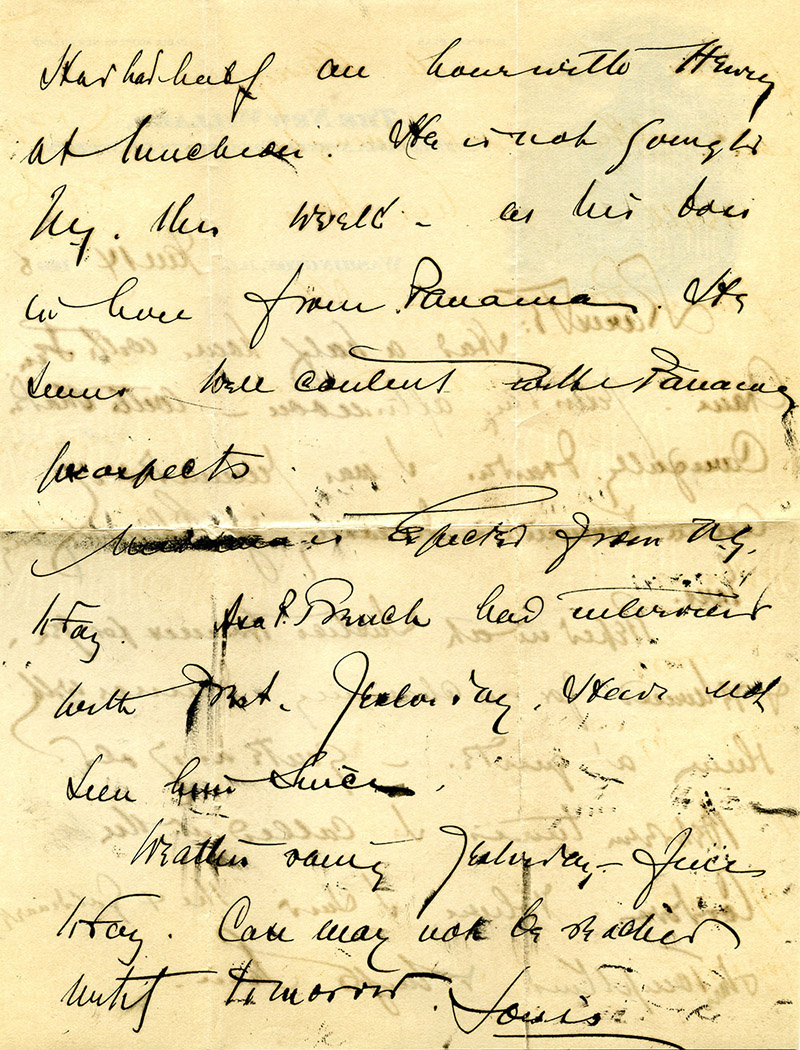 Had had half an hour with Henry
at luncheon. He is not going to
N.Y. this week - as his boss
is here from Panama. He
seems well content with Panama
prospects.
is expected from N.Y.
today. Asa P. French had interview
with Prest. yesterday. Have not
seen him since.
Weather rainy yesterday - fine
today. Case may not be reached
until tomorrow. Louis